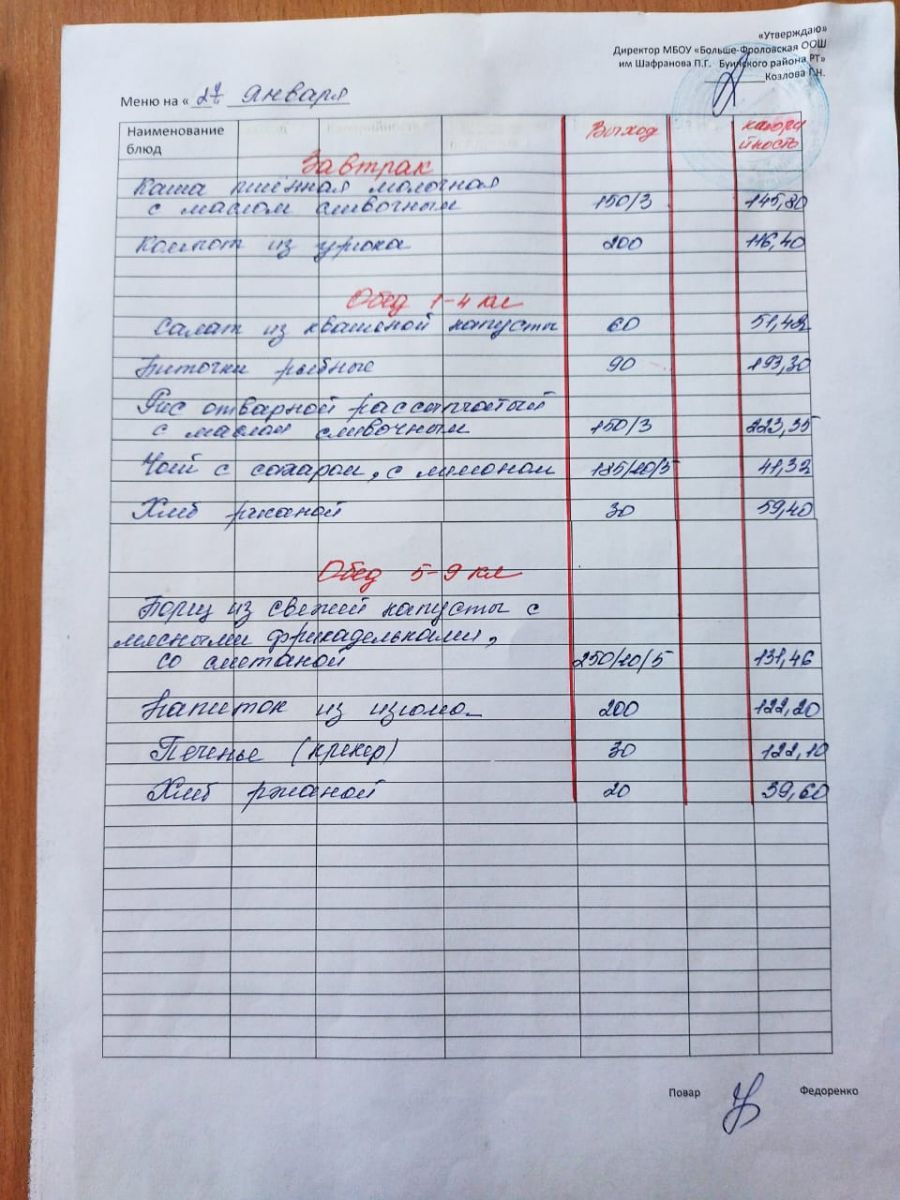 «Утверждаю»
Директор МБОУ «Больше-Фроловская ООШ
им Шафранова П.Г. Буинского района РТ»
Козлова Г.Н.
Меню на « 27 января
Наименование блюд Выход калорийность
Завтрак
Каша пшённая молочная
с маслом сливочным 150/3 145,80
Компот из урюка 200 116,40
Обед 1-4 кл
Салат из квашеной капусты 60 51,42
Биточки рыбные 90 193,30
Рис отварной рассыпчатый
с маслом сливочным 150/3 223,35
Чай с сахаром, с лимоном 185/20/5 41,32
Хлеб ржаной 30 59,40
Обед 5-9 кл
Борщ из свежей капусты с
мясными фрикадельками,
со сметаной 250/20/5 131,46
Напиток из изюма 200 122,20
Печенье (крекер) 30 122,10
Хлеб ржаной 20 39,60
Повар Федоренко